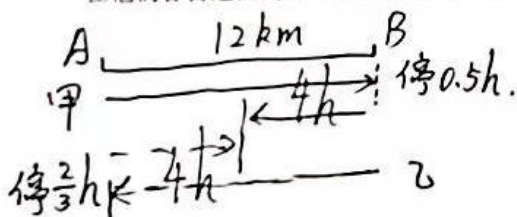 A 12km B
甲 停0.5h.
4h
停2/3h 4h 乙